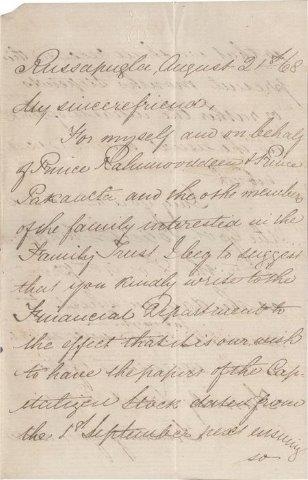 Russapugla, August 21st 68
My sincere friend,
For myself and on behalf
of Prince Rahimooddeen & Prince
and the other members
of the family interested in the
Family Trust, I beg to suggest
that you kindly write to the
Financial Department to
the effect that it is our wish
to have the papers of the
Stock dated from
the 1st September next ensuing
so